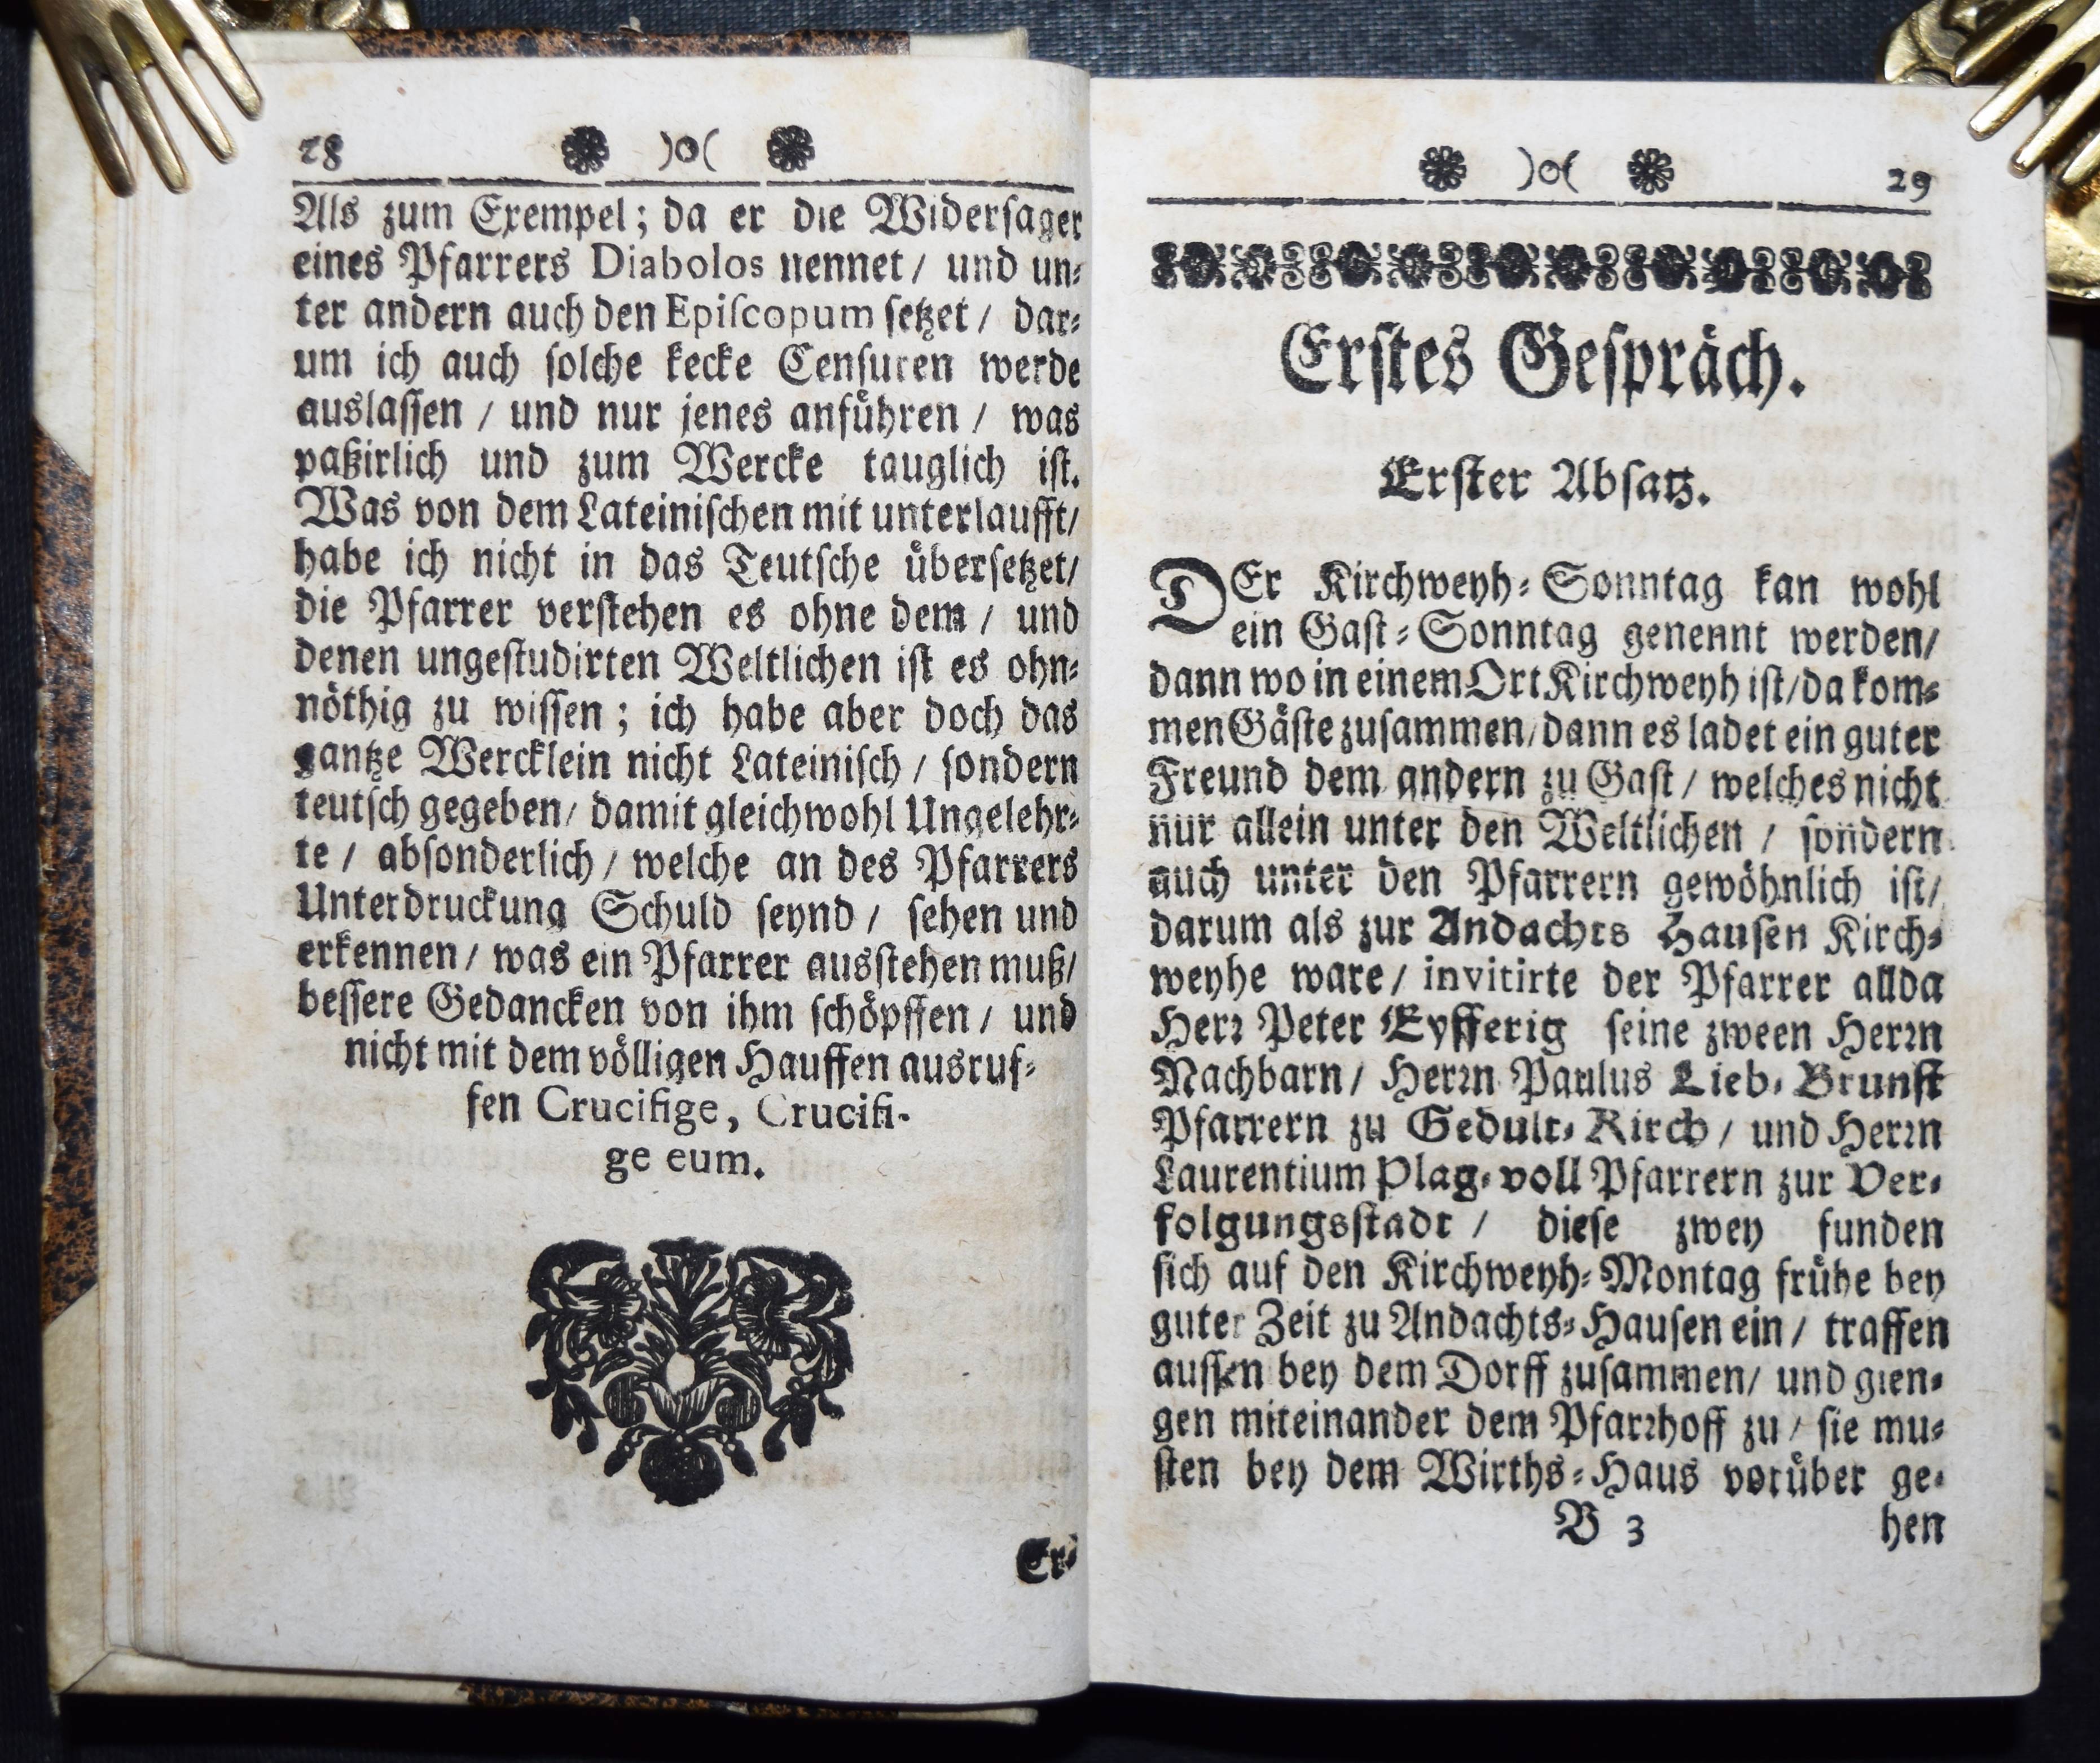 28 )o(
Als zum Exempel; da er die Widerſager
eines Pfarrers Diabolos nennet / und un⸗
ter andern auch den Epiſcopum ſetzet / dar⸗
um ich auch ſolche kecke Cenſuren werde
auslaſſen / und nur jenes anfuͤhren / was
paßirlich und zum Wercke tauglich iſt.
Was von dem Lateiniſchen mit unterlaufft/
habe ich nicht in das Teutſche uͤberſetzet/
die Pfarrer verſtehen es ohne dem / und
denen ungeſtudirten Weltlichen iſt es ohn⸗
noͤthig zu wiſſen; ich habe aber doch das
gantze Wercklein nicht Lateiniſch / ſondern
teutſch gegeben/ damit gleichwohl Ungelehr⸗
te / abſonderlich / welche an des Pfarrers
Unterdruckung Schuld ſeynd / ſehen und
erkennen / was ein Pfarrer ausſtehen muß/
beſſere Gedancken von ihm ſchoͤpffen / und
nicht mit dem voͤlligen Hauffen ausruf⸗
fen Crucifige, Crucifi-
ge eum.
Er⸗
)o( 29
Erſtes Geſpraͤch.
Erſter Abſatz.
DEr Kirchweyh⸗Sonntag kan wohl
ein Gaſt⸗Sonntag genennt werden/
dann wo in einem Ort Kirchweyh iſt/da kom⸗
men Gaͤſte zuſammen/dann es ladet ein guter
Freund dem andern zu Gaſt / welches nicht
nur allein unter den Weltlichen / ſondern
auch unter den Pfarrern gewoͤhnlich iſt/
darum als zur Andachts Hauſen Kirch⸗
weyhe ware / invitirte der Pfarrer allda
Herꝛ Peter Eyfferig ſeine zween Herꝛn
Nachbarn / Herꝛn Paulus Lieb⸗Brunſt
Pfarrern zu Gedult⸗Kirch / und Herꝛn
Laurentium Plag⸗voll Pfarrern zur Ver⸗
folgungsſtadt / dieſe zwey funden
ſich auf den Kirchweyh⸗Montag fruͤhe bey
guter Zeit zu Andachts⸗Hauſen ein / traffen
auſſen bey dem Dorff zuſammen/ und gien⸗
gen miteinander dem Pfarꝛhoff zu / ſie mu⸗
ſten bey dem Wirths⸗Haus voruͤber ge⸗
B 3 hen